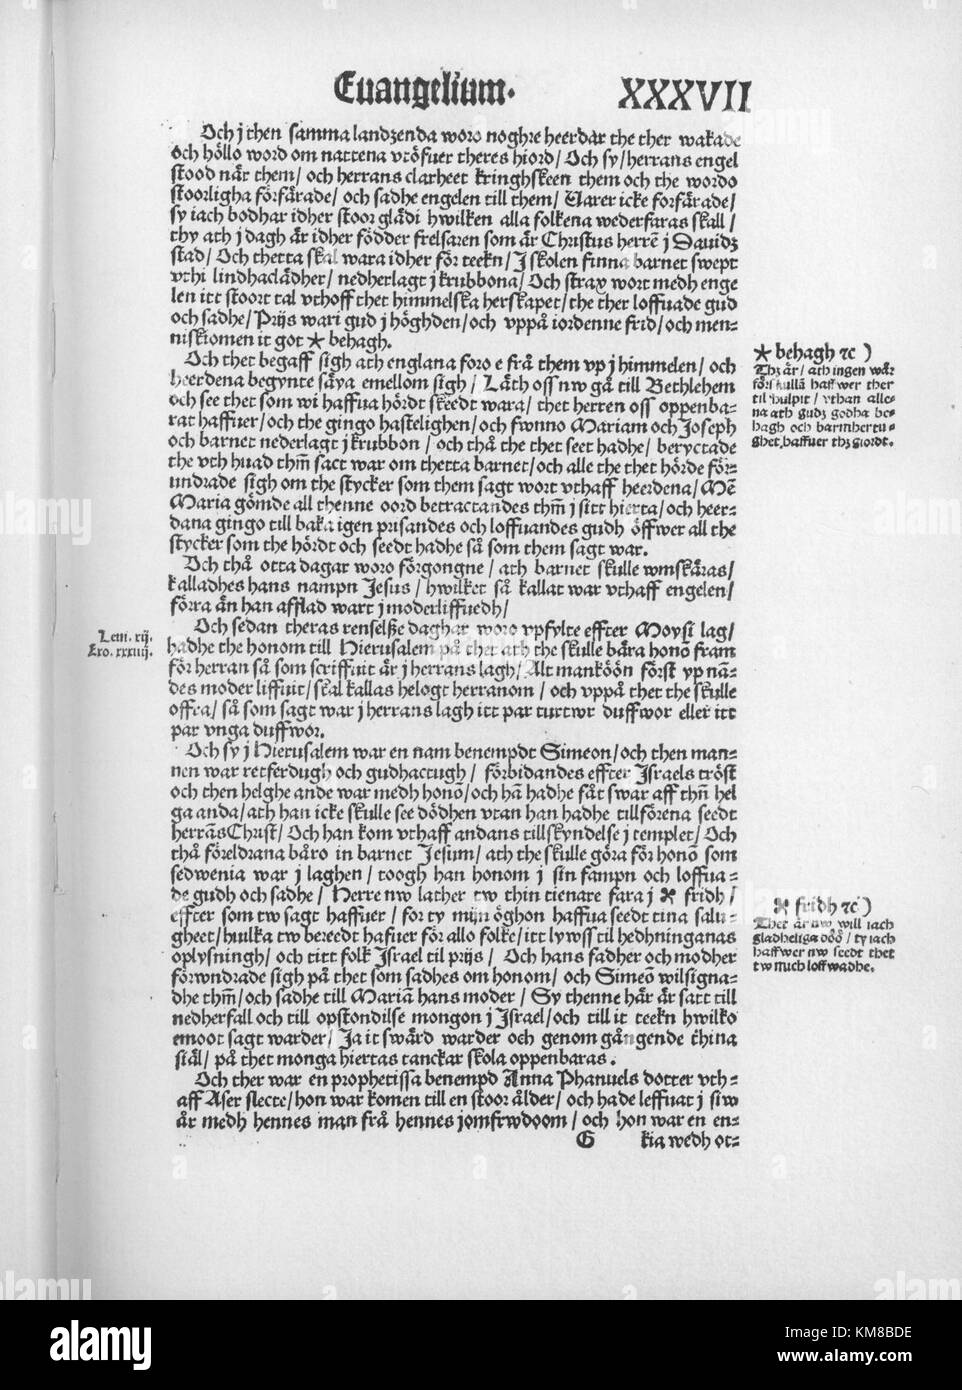 Euangelium. XXXVII
Och j then samma landzenda woro noghre heerdar the ther wakade
och höllo word om nattena vtöfuer theres hiord/ Och sy/ herrans engel
stood när them/ och herrans clarheet kringhskeen them och the wordo
stoorligha förfärade/ och sadhe engelen till them/ Uarer icke forfärade/
sy iach bodhar idher stoor glädi hwilken alla folkena wederfaras skall/
thy ath j dagh är idher födder frelsaren som är Christus herrē j Dauidz
stad/ Och thetta skal wara idher för teekn/ J skolen finna barnet swept
vthi lindhaclädher/ nedherlagt j krubbona/ Och strax wort medh enge
len itt stoort tal vthoff thet himmelska herskapet/ the ther loffuade gud
och sadhe/ Prijs wari gud j höghden/ och vppå iordenne frid/ och men-
niskiomen it got * behagh.
Och thet begaff sigh ath englana foro e frå them vp j himmelen/ och
heerdena begynte säya emellom sigh/ Läth oss nw gå till Bethlehem
och see thet som wi haffua hördt skeedt wara/ thet herren oss oppenba-
rat haffuer/ och the gingo hastelighen/ och fwnno Mariam och Joseph
och barnet nederlagt j krubbon/ och thå the thet seet hadhe/ beryctade
the vth huad thm̄ sact war om thetta barnet/ och alle the thet hörde för-
undrade sigh om the stycker som them sagt wort vthaff heerdena/ Mē
Maria gömde all thenne oord betractandes thm̄ j sitt hierta/ och heer-
dana gingo till baka igen prisandes och loffuandes gudh öffwer all the
stycker som the hördt och seedt hadhe så som them sagt war.
Och thå otta dagar woro förgongne/ ath barnet skulle wmskäras/
kalladhes hans nampn Jesus/ hwilket så kallat war vthaff engelen/
förra än han afflad wart j moderliffuedh/
Och sedan theras renselsze daghar woro vpfylte effter Moysi lag/
hadhe the honom till Hierusalem på ther ath the skulle bära honō fram
för herran så som scriffuit är j herrans lagh/ Alt manköön först yp nā-
des moder liffuit/ skal kallas helogt herranom/ och vppå thet the skulle
offra/ så som sagt war j herrans lagh itt par turtwr duffwor eller itt
par vnga duffwor.
Och sy j Hierusalem war en nam benempdt Simeon/ och then man-
nen war retferdugh och gudhactugh/ förbidandes effter Israels tröst
och then helghe ande war medh honō/ och hā hadhe fåt swar aff thn̄ hel
ga anda/ ath han icke skulle see dödhen vtan han hadhe tillförena seedt
herrās Christ/ Och han kom vthaff andans tillskyndelse j templet/ Och
thå föreldrana båro in barnet Jesum/ ath the skulle göra för honō som
sedwenia war j laghen/ toogh han honom j sin fampn och loffua-
de gudh och sadhe/ Herre nw lather tw thin tienare fara j ✠ fridh/
effter som tw sagt haffuer/ for ty mijn öghon haffua seedt tina salu-
gheet/ huilka tw bereedt hafuer för allo folke/ itt lywss til hedhninganas
oplysningh/ och titt folk Israel til prijs/ Och hans fadher och modher
förwndrade sigh på thet som sadhes om honom/ och Simeō wilsigna-
dhe thm̄/ och sadhe till Mariā hans moder/ Sy thenne här är satt till
nedherfall och till opstondilse mongon j Israel/ och till it teekn hwilko
emoot sagt warder/ Ja it swärd warder och genom gångende thina
siäl/ på thet monga hiertas tanckar skola oppenbaras.
Och ther war en prophetissa benempd Anna Phanuels dotter vth-
aff Aser slecte/ hon war komen till en stoor ålder/ och hade leffuat j siw
år medh hennes man frå hennes jomfrwdoom/ och hon war en en-
G kia wedh ot-
* behagh ⁊c)
Thz är/ ath ingen wår
förskullā haffwer ther
til hulpit/ vthan alle-
na ath gudz godha be-
hagh och barmhertu-
ghet, haffuer thz giordt.
Leui. xij.
Exo. xxxiiij.
✠ fridh ⁊c)
Thet är nw will iach
gladheliga döö/ ty iach
haffwer nw seedt thet
tw much loffwadhe.
alamy
KM8BDE
www.alamy.com